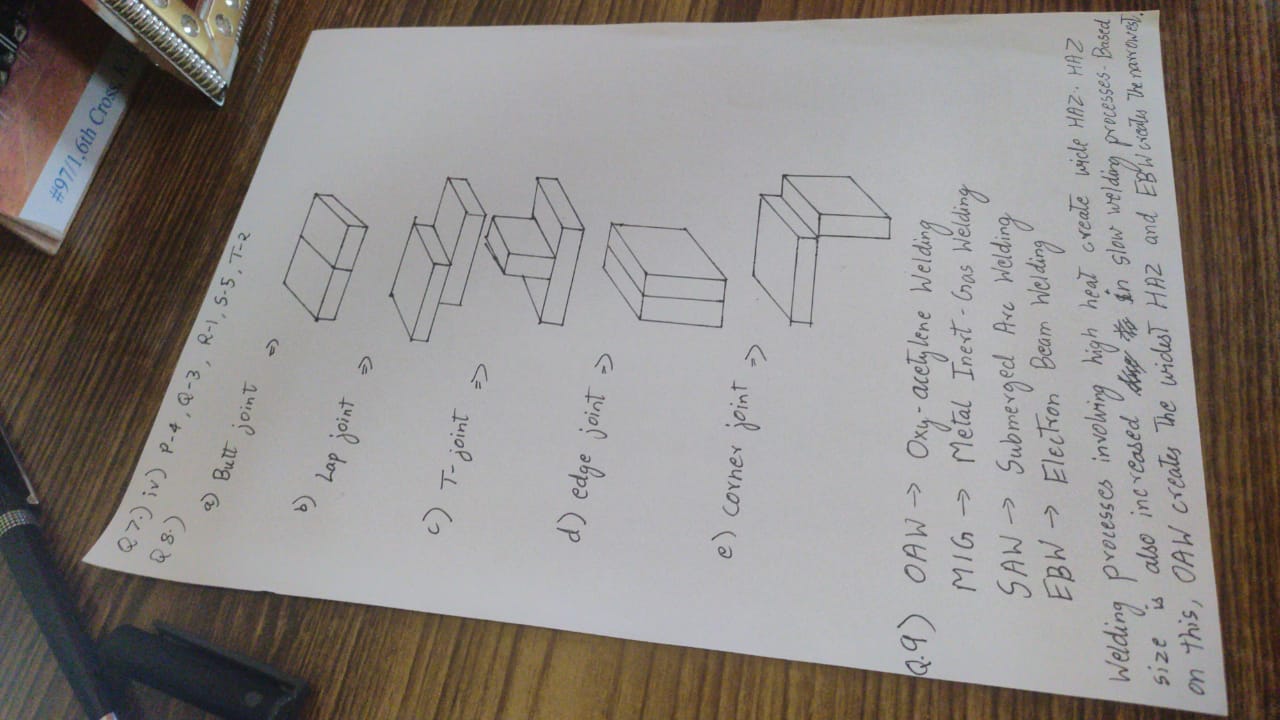 #97/1,6th Cross, K.
Q 7.) iv) P-4, Q-3, R-1, S-5, T-2
Q 8.)
a) Butt joint ⇒
b) Lap joint ⇒
c) T-joint ⇒
d) edge joint ⇒
e) corner joint ⇒
Q.9) OAW → Oxy-acetylene Welding
MIG → Metal Inert-Gas Welding
SAW → Submerged Arc Welding
EBW → Electron Beam Welding
Welding processes involving high heat create wide HAZ. HAZ
size is also increased in slow welding processes. Based
on this, OAW creates the widest HAZ and EBW creates the narrowest.